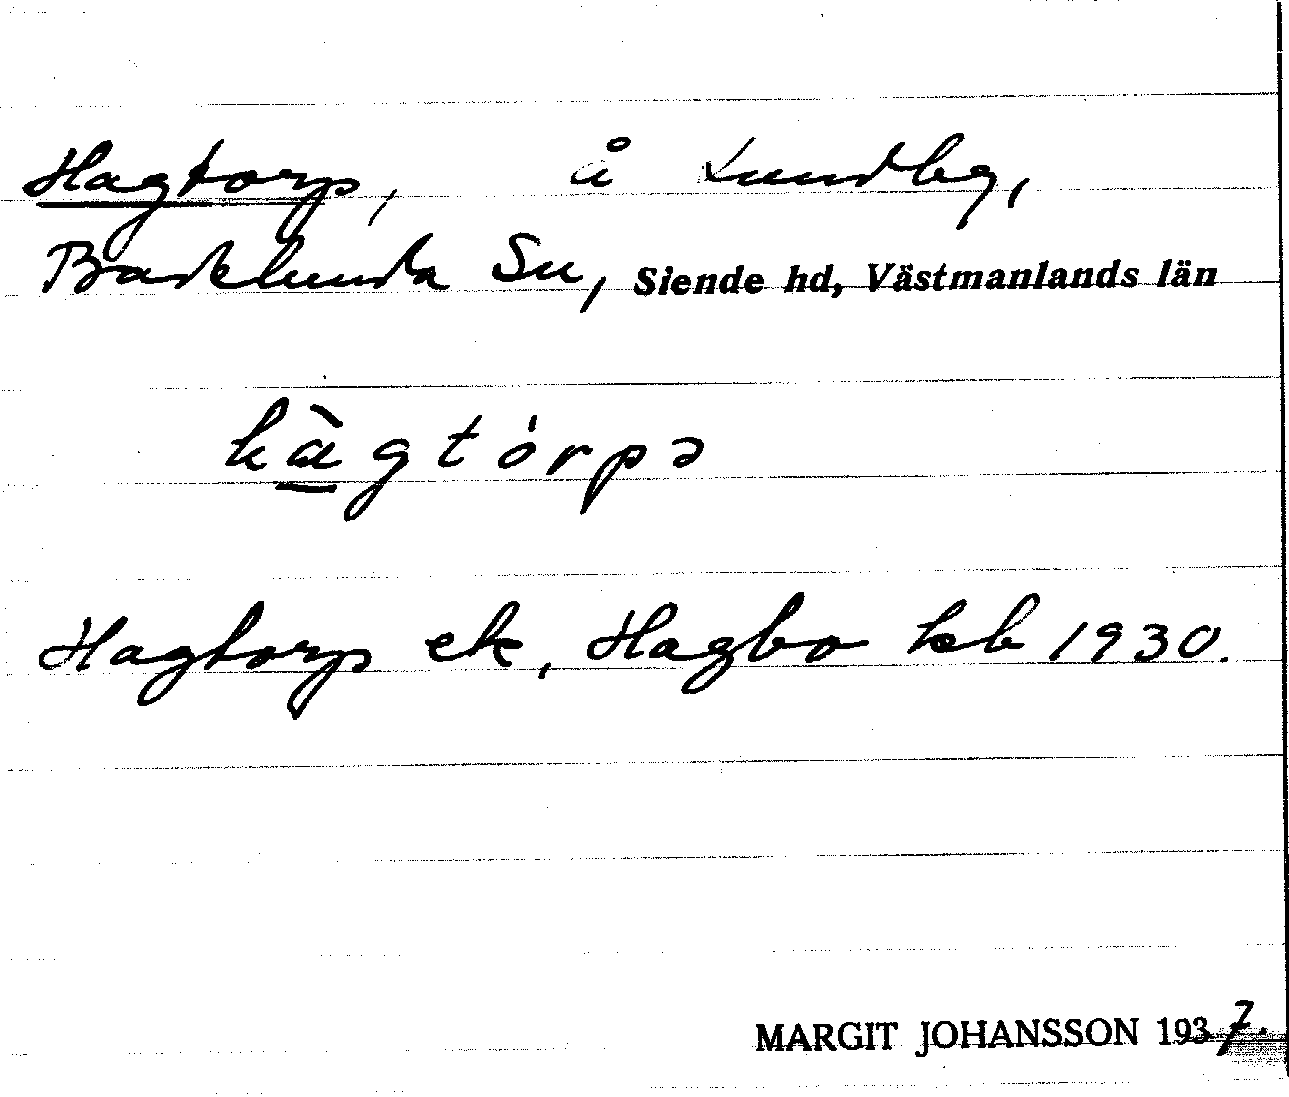 Hagtorp, å Lundby,
Badelunda Sn, Siende hd, Västmanlands län
hàgtórpə
Hagtorp ek, Hagbo hb 1930.
MARGIT JOHANSSON 1937.